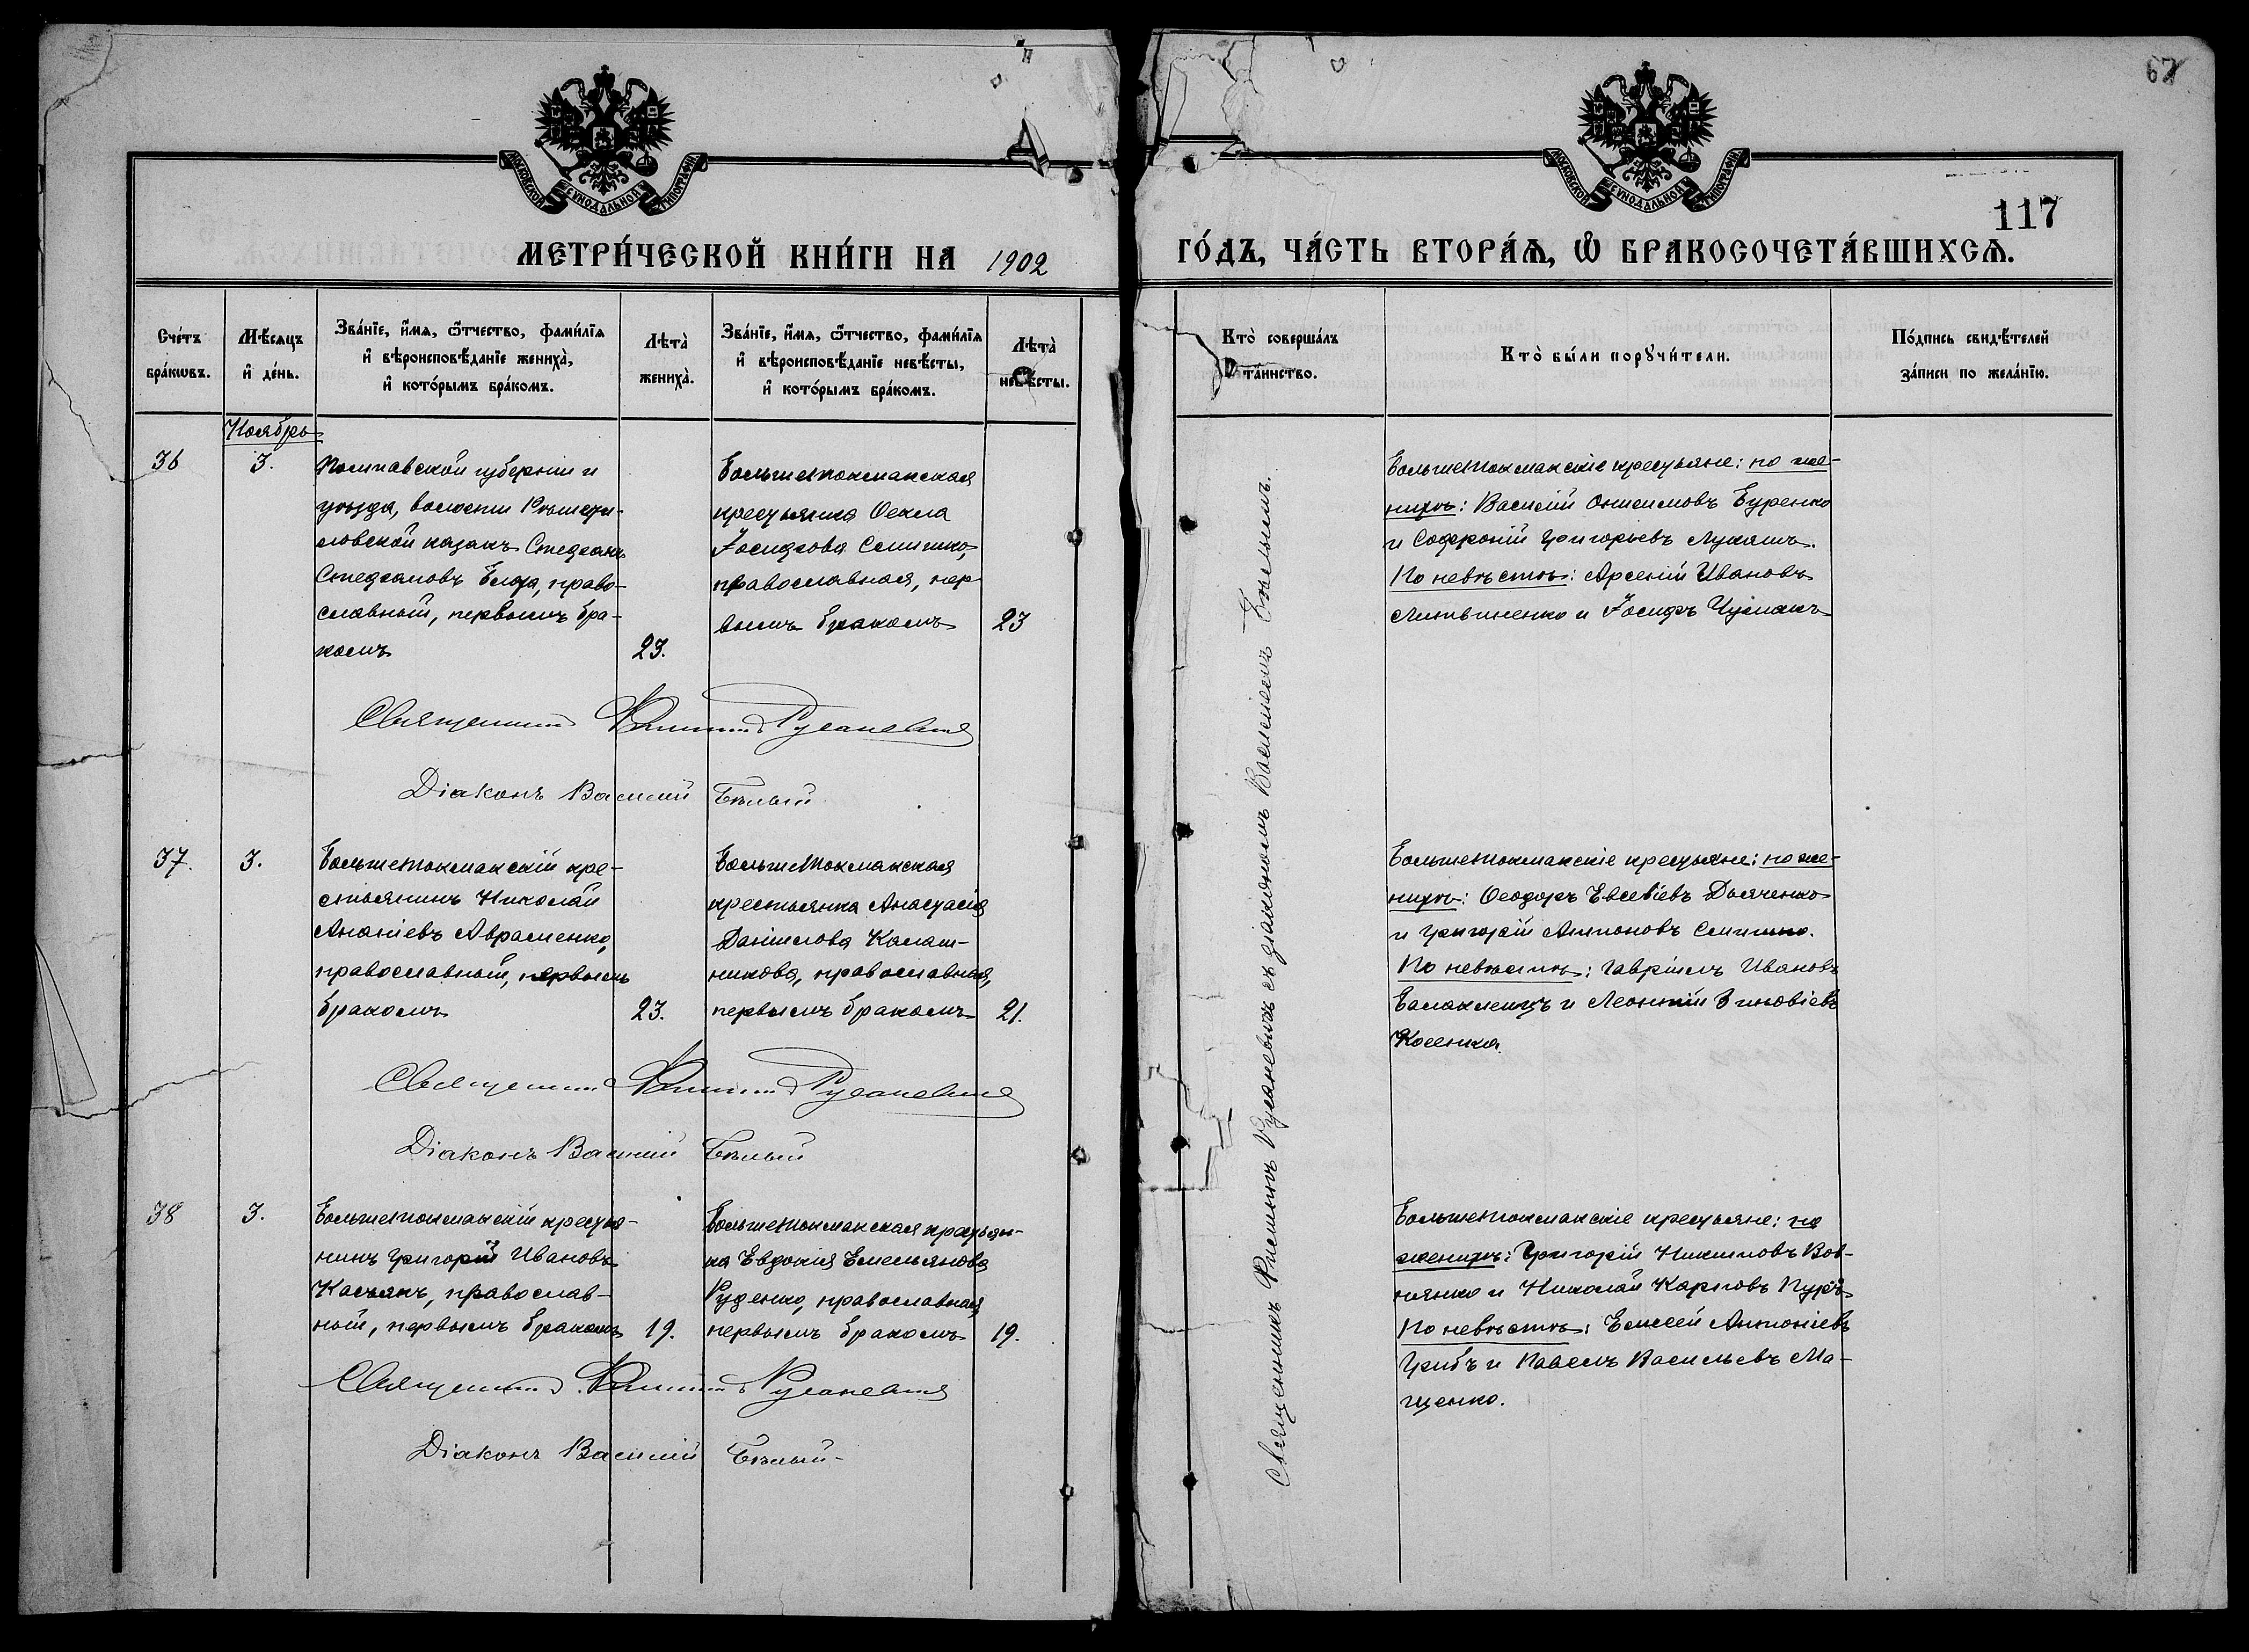 67
117
МОСКОВСКОЙ СѴНОДАЛЬНОЙ ТИПОГРАФІИ
МОСКОВСКОЙ СѴНОДАЛЬНОЙ ТИПОГРАФІИ
МЕТРИ́ЧЕСКОЙ КНИ́ГИ НА 1902 ГО́ДЪ, ЧА́СТЬ ВТОРА́Ѧ, Ѡ БРАКОСОЧЕТА́ВШИХСѦ.
Сче́тъ бра́кѡвъ.
Мѣ́сѧцъ и҆ де́нь.
Зва́нїе, и҆́мѧ, ѻ҆́тчество, фами́лїѧ
и҆ вѣроисповѣ́данїе жениха̀,
и҆ кото́рымъ бра́комъ.
Лѣта̀ жениха̀.
Зва́нїе, и҆́мѧ, ѻ҆́тчество, фами́лїѧ
и҆ вѣроисповѣ́данїе невѣ́сты,
и҆ кото́рымъ бра́комъ.
Лѣта̀ невѣ́сты.
Кто̀ соверша́лъ
та́инство.
Кто̀ бы́ли порꙋчи́тели.
По́дпись свидѣ́телей
за́писи по жела́нїю.
Ноябрь
36
3.
Полтавской губерніи и
уѣзда, волости
казакъ Стефанъ
Стефановъ право-
славный, первымъ бра-
комъ
23.
Большетокмакская
крестьянка Ѳекла
Іосифова Семишко,
православная, пер-
вымъ бракомъ
23
Большетокмакскіе крестьяне: по же-
нихѣ: Василій Онисимовъ Буренко
и Софроній Григорьевъ Лукашъ.
По невѣстѣ: Арсеній Ивановъ
Литвиненко и Іосифъ Чумакъ
Священникъ Филиппъ Русаневичъ
Діаконъ Василій Бѣлый
37.
3.
Большетокмакскій кре-
стьянинъ Николай
Ананіевъ Авраменко,
православный, первымъ
бракомъ
23.
Большетокмакская
крестьянка Анастасія
Даніилова Калаш-
никова, православная,
первымъ бракомъ
21.
Большетокмакскіе крестьяне: по же-
нихѣ: Ѳеодоръ Евсевіевъ Дьяченко
и Григорій Антоновъ Семишко.
По невѣстѣ: Гавріилъ Ивановъ
Балаклеецъ и Леонтій Зиновіевъ
Косенко.
Священникъ Филиппъ Русаневичъ
Діаконъ Василій Бѣлый
38
3.
Большетокмакскій крестья-
нинъ Григорій Ивановъ
Касьянъ, православ-
ный, первымъ бракомъ
19.
Большетокмакская крестьян-
ка Евдокія Емельянова
Руденко, православная,
первымъ бракомъ
19.
Большетокмакскіе крестьяне: по
женихѣ: Григорій Никитовъ Вов-
нянко и Николай Карповъ
По невѣстѣ: Елисей Антоніевъ
Грибъ и Павелъ Васильевъ Ма-
щенко.
Священникъ Филиппъ Русаневичъ
Діаконъ Василій Бѣлый
Священникъ Филиппъ Русаневичъ съ діакономъ Василіемъ Бѣлымъ.